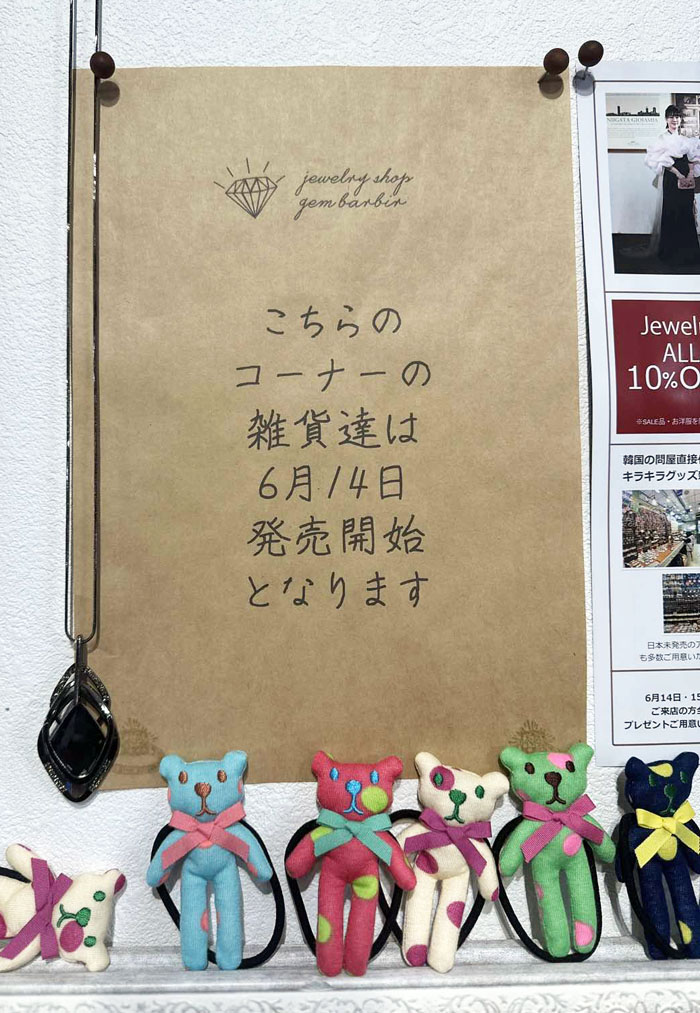 jewelry shop
gem barbir
こちらの
コーナーの
雑貨達は
6月14日
発売開始
となります
NIIGATA GIOIAMIA
ALL
韓国の問屋直接
キラキラグッズ
日本未発売の
も多数ご用意
6月14日・15
ご来店の方
プレゼントご用意